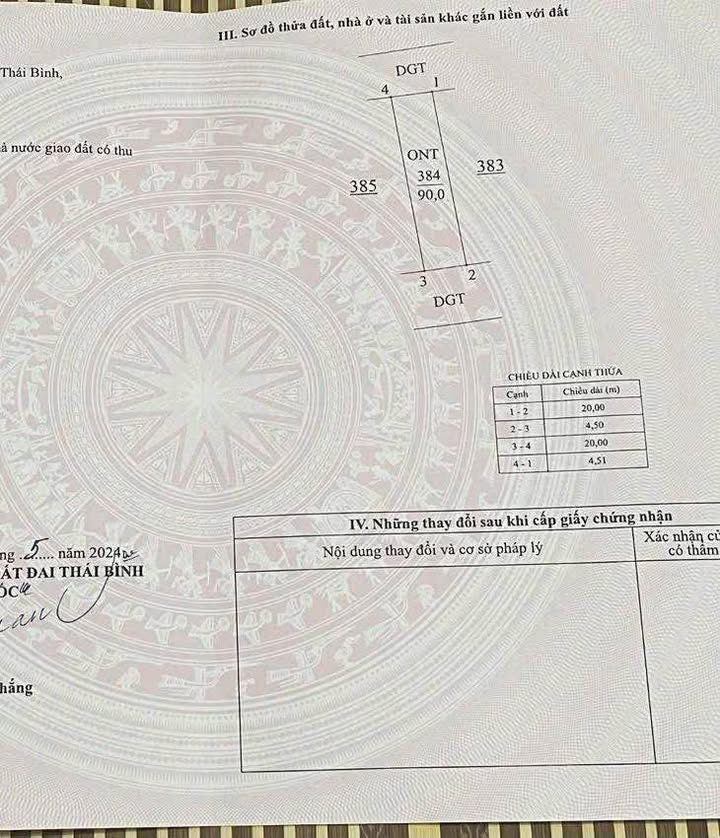 III. Sơ đồ thửa đất, nhà ở và tài sản khác gắn liền với đất
Thái Bình,
DGT
4 1
à nước giao đất có thu
ONT
385 384 383
90,0
3 2
DGT
CHIỀU DÀI CẠNH THỬA
Cạnh Chiều dài (m)
1 - 2 20,00
2 - 3 4,50
3 - 4 20,00
4 - 1 4,51
IV. Những thay đổi sau khi cấp giấy chứng nhận
Nội dung thay đổi và cơ sở pháp lý
Xác nhận củ
có thẩm
ng ..5..... năm 2024
ẤT ĐAI THÁI BÌNH
ỐC
hắng